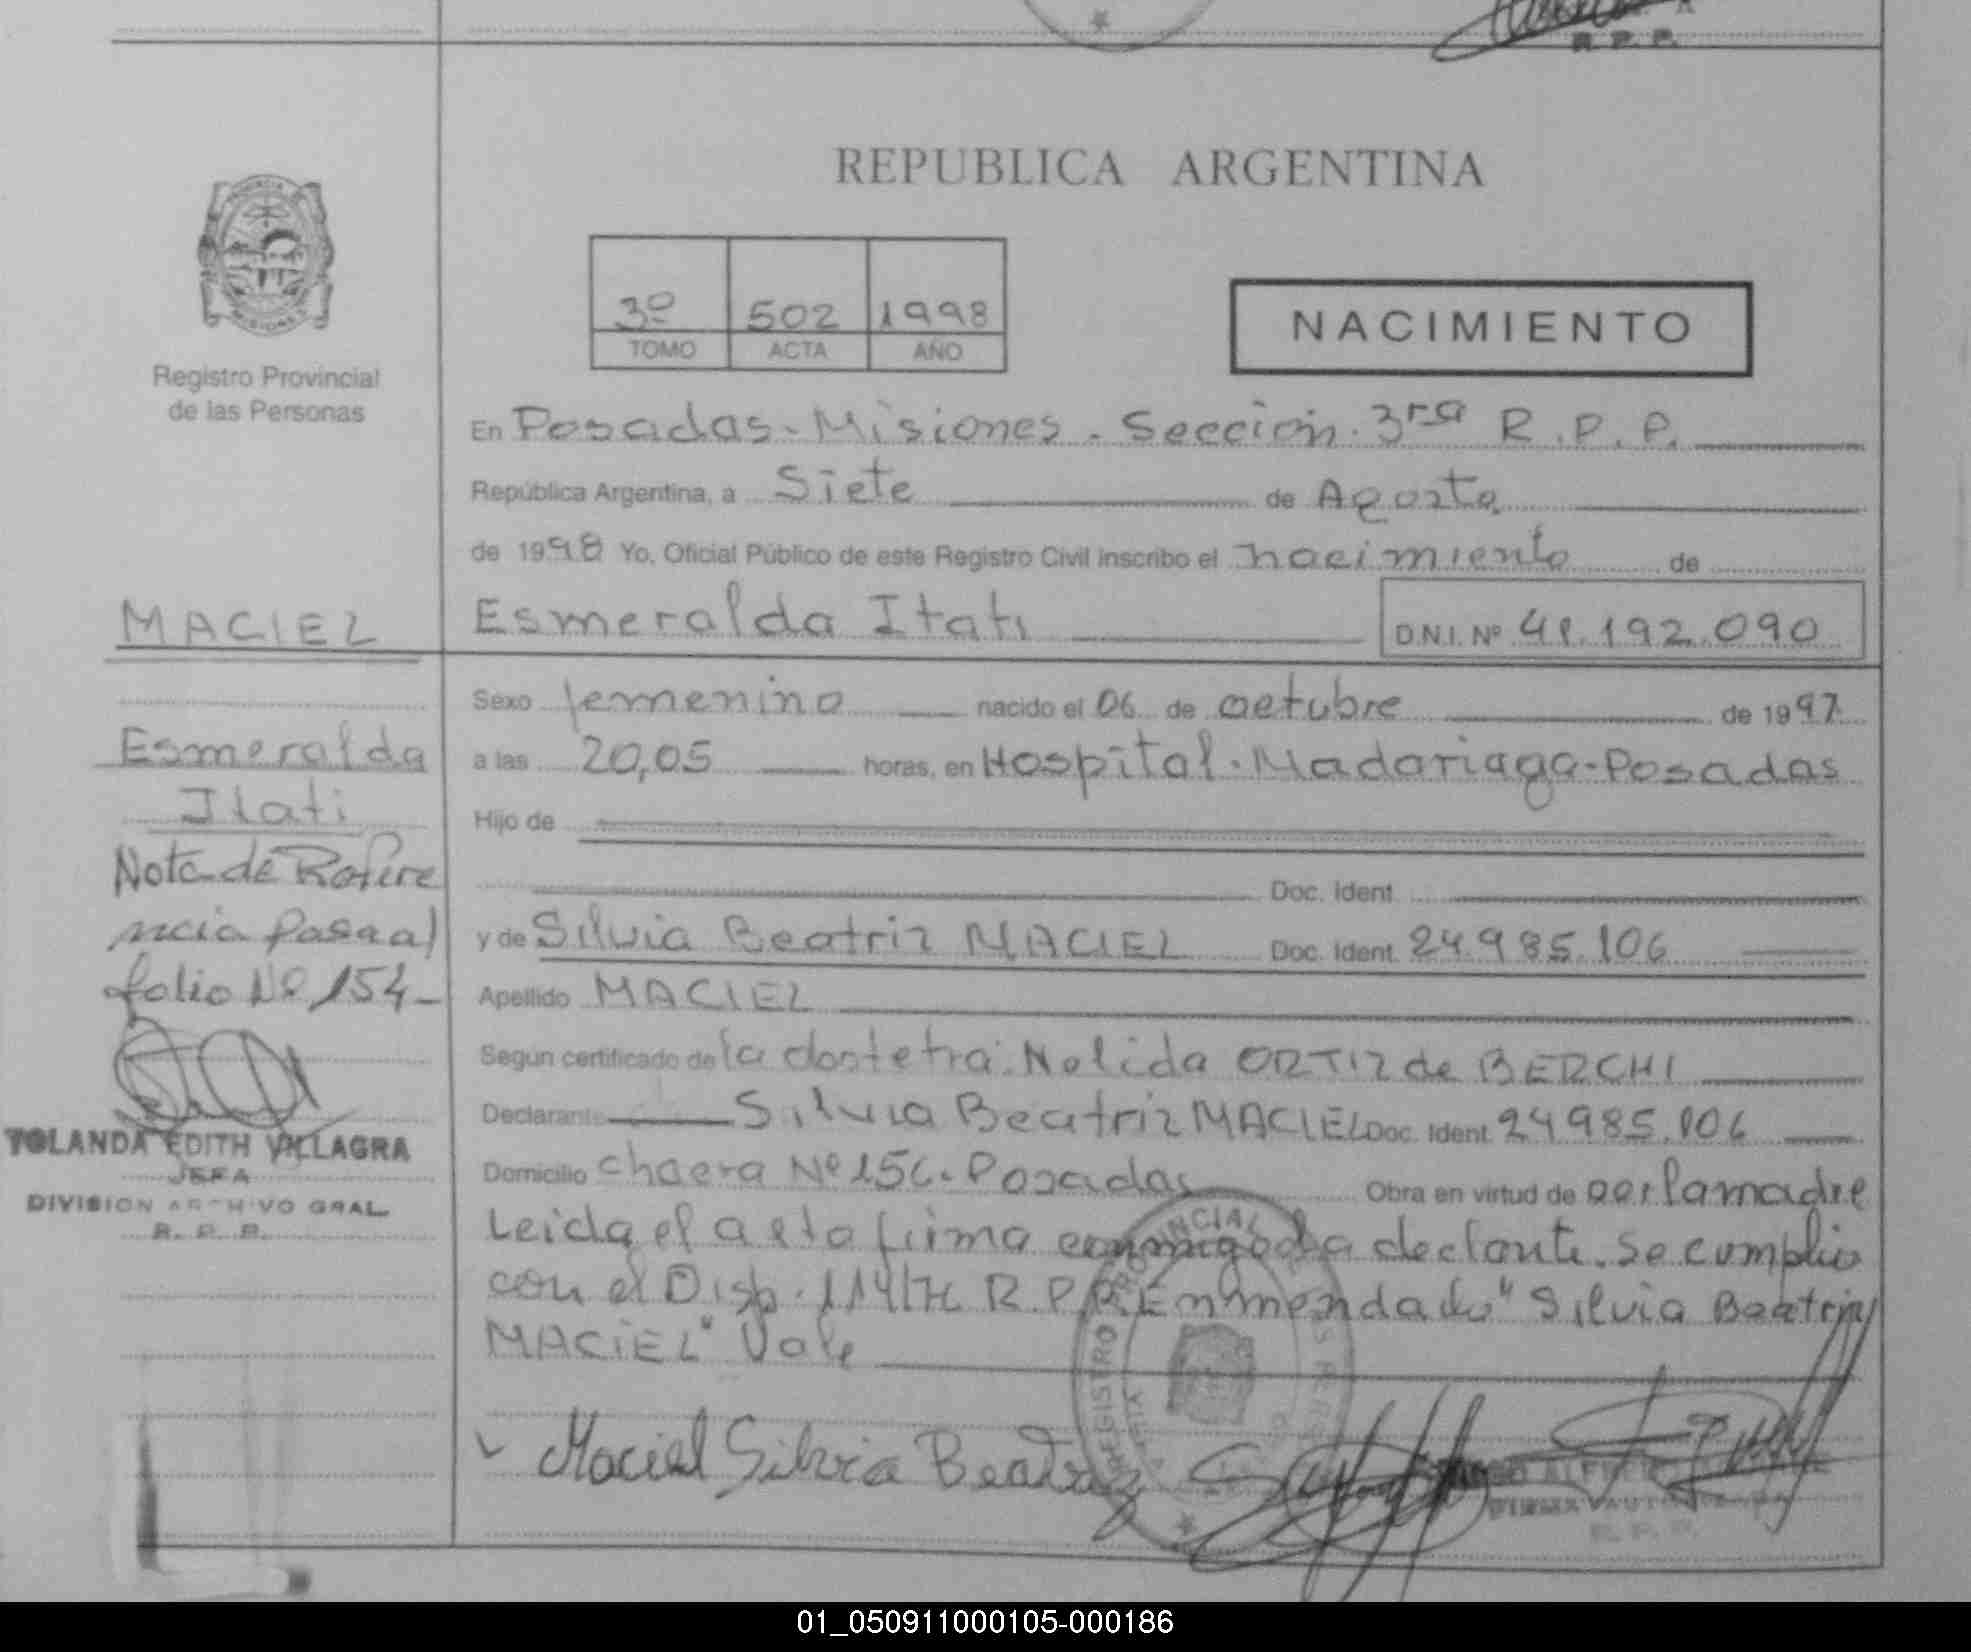 R. P. P.
REPUBLICA ARGENTINA
3º 502 1998
TOMO ACTA AÑO
NACIMIENTO
PROVINCIA MISIONES
Registro Provincial
de las Personas
En Posadas - Misiones - Sección 3ra R.P.P.
República Argentina, a Siete de Agosto
de 1998 Yo, Oficial Público de este Registro Civil inscribo el nacimiento de
MACIEL Esmeralda Itatí D.N.I. Nº 41.192.090
Sexo femenino nacido el 06 de octubre de 1997
a las 20,05 horas, en Hospital - Madariaga - Posadas
Hijo de
Doc. Ident.
y de Silvia Beatriz MACIEL Doc. Ident. 24.985.106
Apellido MACIEL
Según certificado de la obstetra: Nelida ORTIZ de BERCHI
Declarante Silvia Beatriz MACIEL Doc. Ident. 24985.106
Domicilio chacra Nº 156 - Posadas Obra en virtud de ser la madre
Leida el acta firma conmigo la declante. Se cumplio
con el Disp. 114/76 R.P.P. Enmendado "Silvia Beatriz
MACIEL" Vale
Maciel Silvia Beatriz
Esmeralda
Itati
Nota de Refere
ncia pasa al
folio Nº 154 -
YOLANDA EDITH VILLAGRA
JEFA
DIVISION ARCHIVO GRAL
R. P. P.
REGISTRO PROVINCIAL
R. P. P.
01_050911000105-000186